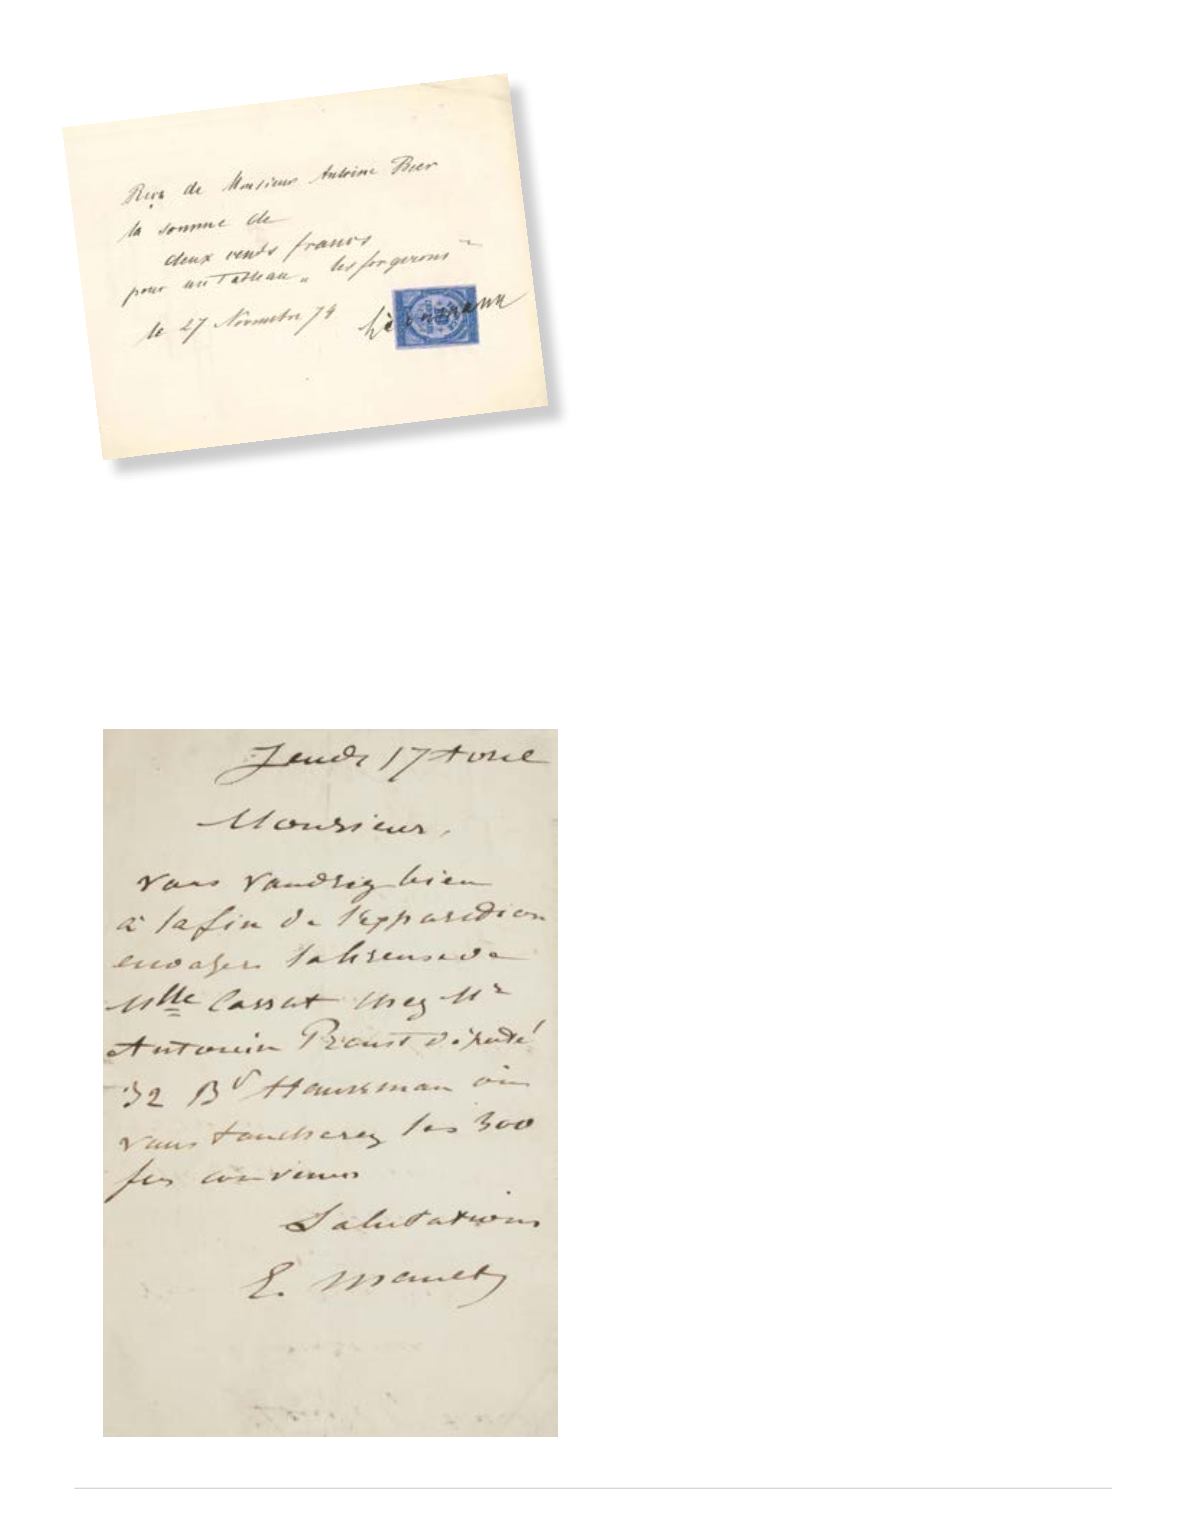 Reçu de Monsieur Antoine Beer
la somme de
deux cents francs
pour un Tableau „ les forgerons "
le 27 Novembre 74 Liebermann
Jeudi 17 Avril
Monsieur,
vous voudrez bien
à la fin de l'exposition
envoyer
Mlle Cassat chez Mr
Antonin Proust député
32 Bd Haussman où
vous toucherez les 300
frs convenus
Salutations
E. Manet